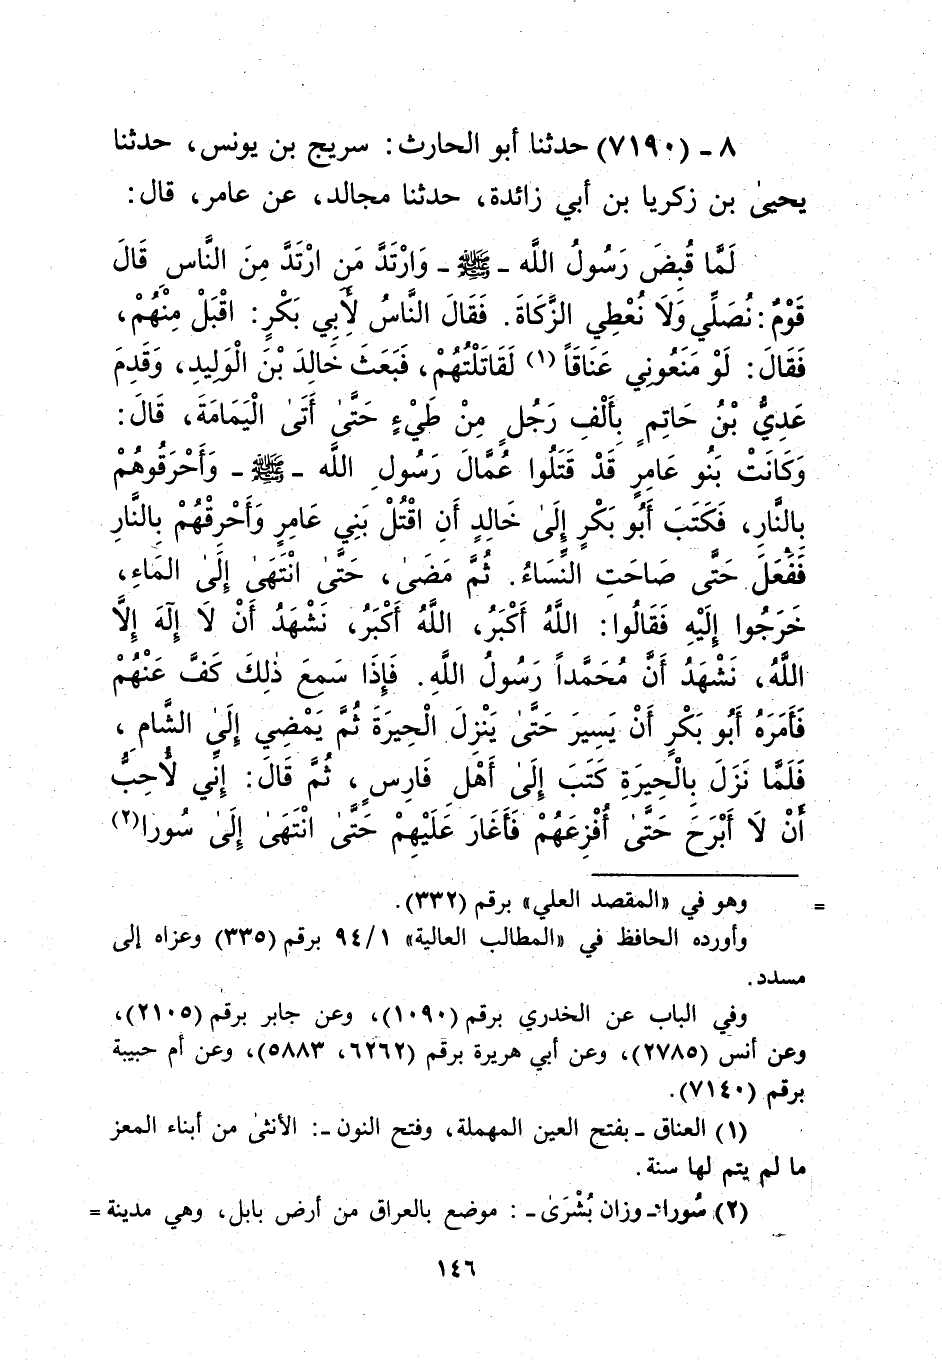 ٨ - (٧١٩٠) حدثنا أبو الحارث: سريج بن يونس، حدثنا
يحيىٰ بن زكريا بن أبي زائدة، حدثنا مجالد، عن عامر، قال:
لَمَّا قُبِضَ رَسُولُ اللَّه - ﷺ - وَارْتَدَّ مَنِ ارْتَدَّ مِنَ النَّاسِ قَالَ
قَوْمٌ: نُصَلِّي وَلَا نُعْطِي الزَّكَاةَ. فَقَالَ النَّاسُ لِأَبِي بَكْرٍ: اقْبَلْ مِنْهُمْ،
فَقَالَ: لَوْ مَنَعُونِي عَنَاقَاً (١) لَقَاتَلْتُهُمْ، فَبَعَثَ خَالِدَ بْنَ الْوَلِيدِ، وَقَدِمَ
عَدِيُّ بْنُ حَاتِمٍ بِأَلْفِ رَجُلٍ مِنْ طَيْءٍ حَتَّىٰ أَتَىٰ الْيَمَامَةَ، قَالَ:
وَكَانَتْ بَنُو عَامِرٍ قَدْ قَتَلُوا عُمَّالَ رَسُولِ اللَّه - ﷺ - وَأَحْرَقُوهُمْ
بِالنَّارِ، فَكَتَبَ أَبُو بَكْرٍ إِلَىٰ خَالِدٍ أَنِ اقْتُلْ بَنِي عَامِرٍ وَأَحْرِقْهُمْ بِالنَّارِ
فَفَعَلَ حَتَّى صَاحَتِ النِّسَاءُ. ثُمَّ مَضَىٰ، حَتَّىٰ انْتَهَىٰ إِلَىٰ المَاءِ،
خَرَجُوا إِلَيْهِ فَقَالُوا: اللَّهُ أَكْبَرُ، اللَّهُ أَكْبَرُ، نَشْهَدُ أَنْ لَا إِلَهَ إِلاَّ
اللَّهُ، نَشْهَدُ أَنَّ مُحَمَّداً رَسُولُ اللَّهِ. فَإِذَا سَمِعَ ذٰلِكَ كَفَّ عَنْهُمْ
فَأَمَرَهُ أَبُو بَكْرٍ أَنْ يَسِيرَ حَتَّىٰ يَنْزِلَ الْحِيرَةَ ثُمَّ يَمْضِي إِلَىٰ الشَّامِ،
فَلَمَّا نَزَلَ بِالْحِيرَةِ كَتَبَ إِلَىٰ أَهْلِ فَارِسٍ، ثُمَّ قَالَ: إِنِّي لَأُحِبُّ
أَنْ لَا أَبْرَحَ حَتَّىٰ أُفْزِعَهُمْ فَأَغَارَ عَلَيْهِمْ حَتَّىٰ انْتَهَىٰ إِلَىٰ سُورا(٢)
= وهو في «المقصد العلي» برقم (٣٣٢).
وأورده الحافظ في «المطالب العالية» ٩٤/١ برقم (٣٣٥) وعزاه إلى
مسدد.
وفي الباب عن الخدري برقم (١٠٩٠)، وعن جابر برقم (٢١٠٥)،
وعن أنس (٢٧٨٥)، وعن أبي هريرة برقم (٦٢٦٢، ٥٨٨٣)، وعن أم حبيبة
برقم (٧١٤٠).
(١) العناق - بفتح العين المهملة، وفتح النون -: الأنثىٰ من أبناء المعز
ما لم يتم لها سنة.
(٢) سُورا - وزان بُشْرَىٰ - : موضع بالعراق من أرض بابل، وهي مدينة =
١٤٦